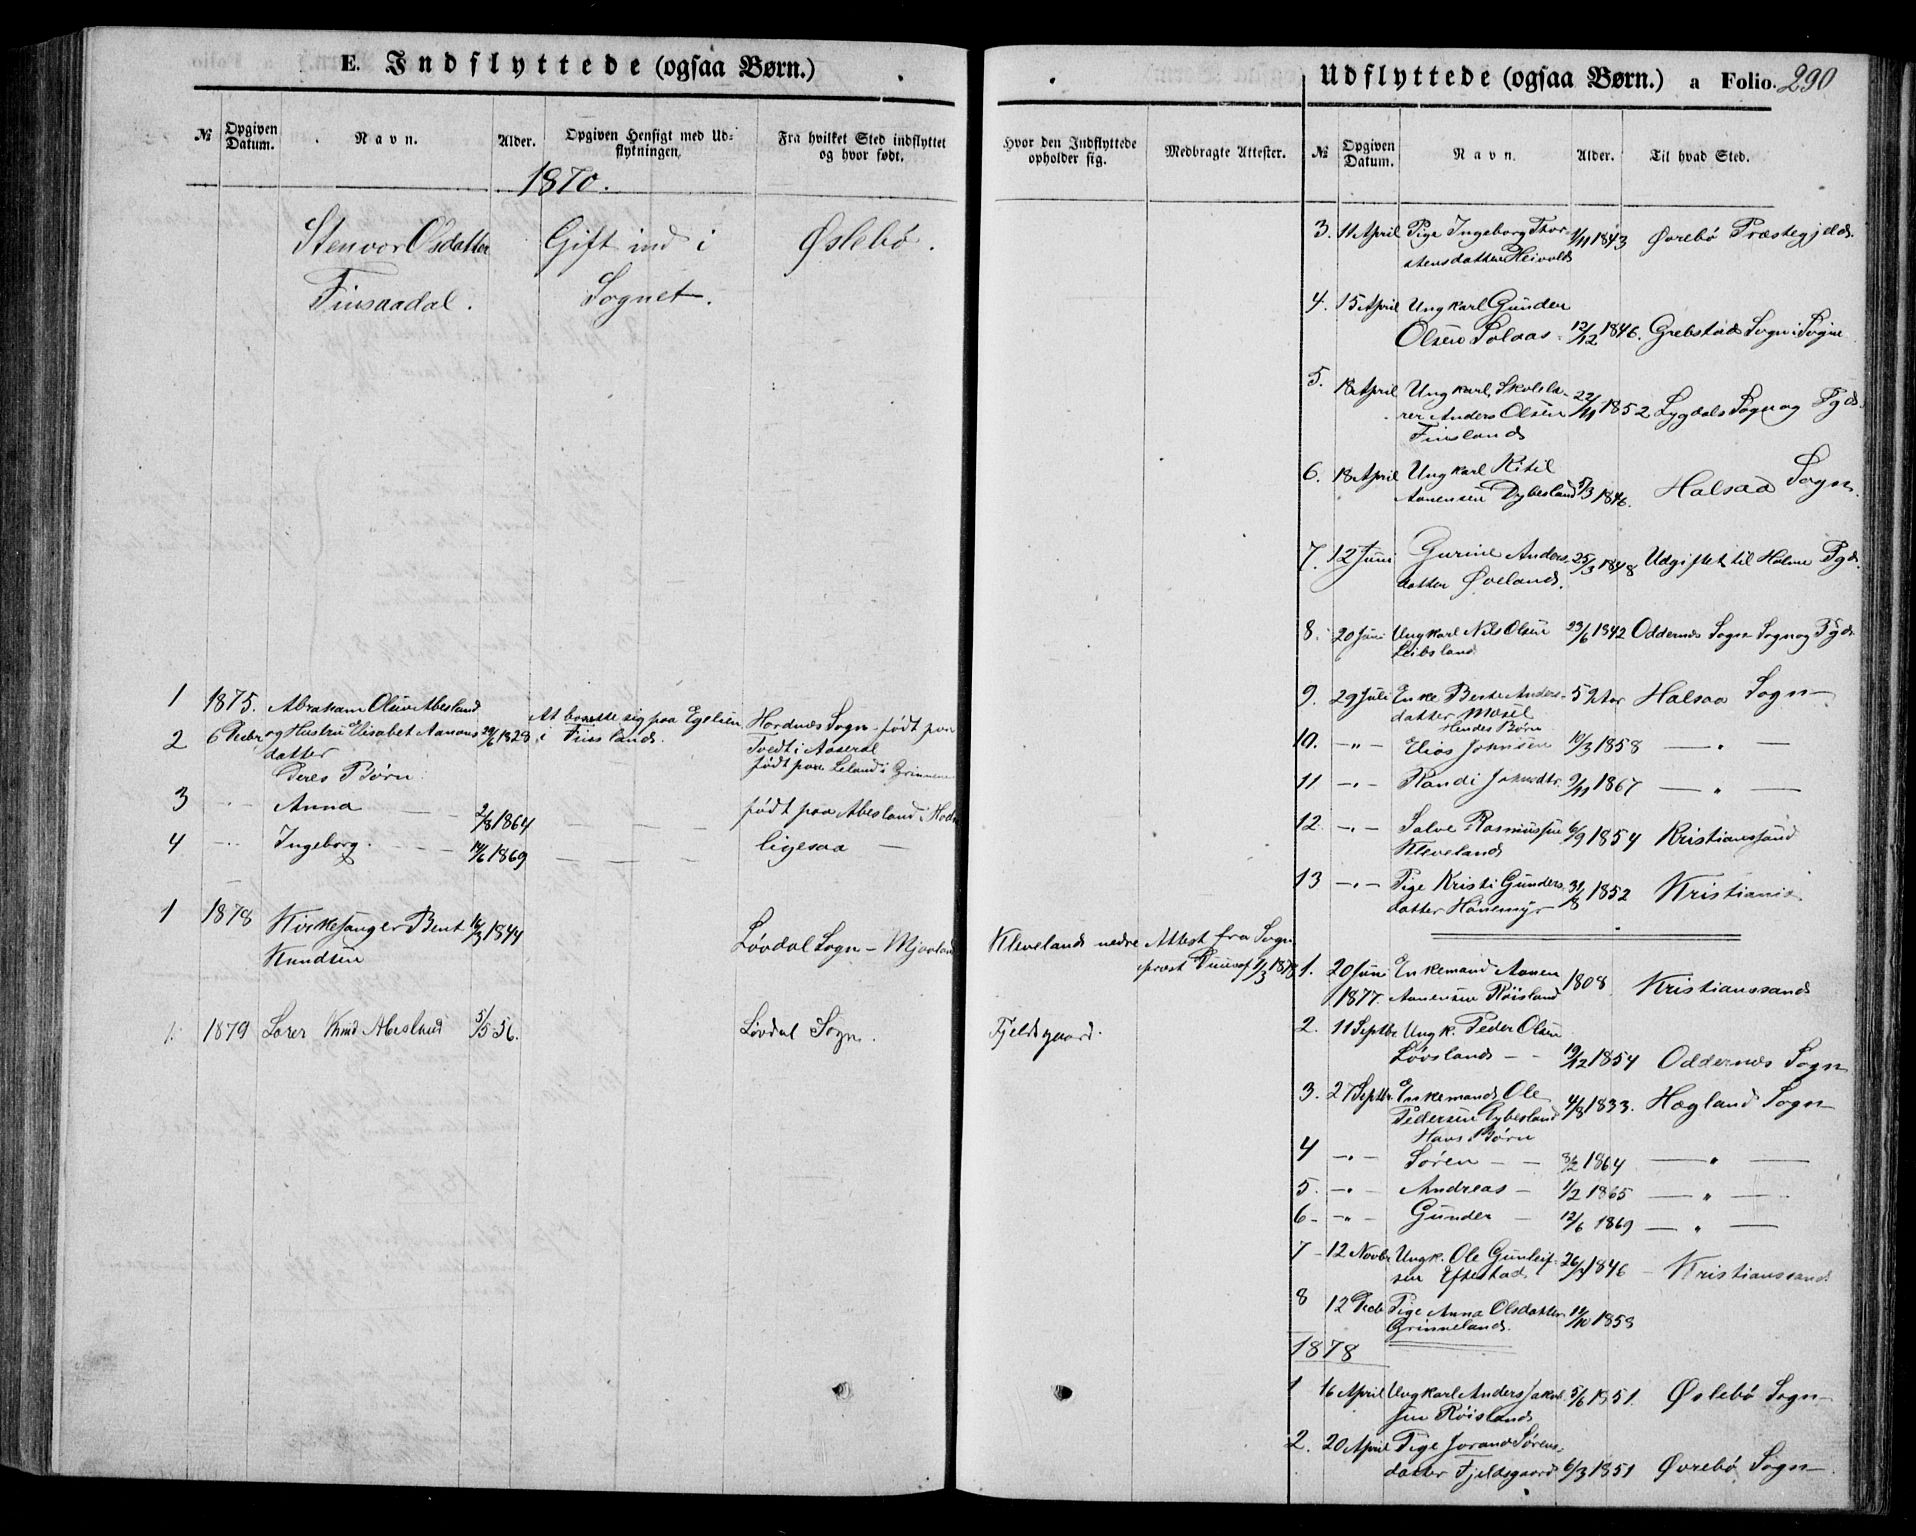 E. Indflyttede (ogsaa Børn.)
№ Opgiven Datum. Navn. Alder. Opgiven Hensigt med Udflytningen. Fra hvilket Sted indflyttet og hvor født.
1870.
Stenvor Olsdatter Gift ind i Øslebö.
Finsaadal. Sognet.
1 1875. Abraham Olsen Abesland
2 6 Febr og Hustru Elisabet Aanons 1828 At bosætte sig paa Egelien Hordnæs Sogn født paa
datter i Finsland. Tvedt i Aaseral
Deres Børn: født paa Leland i Grinnene
3 Anna 2/8 1864 født paa Abesland i Hodn
4 Ingeborg. 14/6 1869 ligesaa
1 1878 Kirkesanger Bent 16/3 1844 Løvdal Sogn - Mjaaland
Knudsen
1. 1879 Lærer Knud Abesland 5/5 56. Løvdal Sogn.
Hvor den Indflyttede opholder sig. Medbragte Attester.
Kleveland nedre Attest fra Sogne
præst 1/3 1878
Fjeldsgaard.
Udflyttede (ogsaa Børn.) a Folio. 290
№ Opgiven Datum. Navn. Alder. Til hvad Sted.
3. 11 April Pige Ingeborg Thor 1/11 1843 Øvrebö Præstegjeld.
stensdatter Heivold
4. 15 April Ungkarl Gunder
Olsen Solaas 12/12 1846. Grebstad Sogn i Sogne
5. 18 April Ungkarl, Skolelæ-
rer Anders Olsen 22/11 1852 Lygdals Sogn og Pgd.
Finsland
6. 18 April Ungkarl Kitil
Aanensen Dybesland 5/3 1846. Halsaa Sogn.
7. 12 Juni Gurine Anders 25/3 1848 Udgiftet til Holme Pgd.
datter Øveland.
8. 20 Juni Ungkarl Nils Olsen 23/6 1842 Oddernæs Sogn Sogn og Pgd.
Leibsland
9. 29 Juli Enke Berte Anders- 52 Aar Halsaa Sogn
datter Mæsel
Hendes Børn
10. -"- Elias Johnsen 10/3 1858 - " -
11 -"- Randi Johnsdtr. 9/11 1867 - " -
12. -"- Salve Rasmussen 6/9 1854 Kristianssand
Kleveland
13 -"- Pige Kristi Gunders 31/8 1852 Kristiania
datter Hønemyr
1. 20 Juni Enkemand Aanen 1808 Kristianssand
1877. Aanensen Röisland
2. 11 Septbr Ungk. Peder Olsen
Lövsland - - 19/12 1854 Oddernæs Sogn
3. 27 Septbr. Enkemand Ole 4/8 1833. Hægland Sogn
Pedersen Dybesland
Hans Børn
4 -"- Sören - - 8/2 1864 - " -
5. -"- Andreas - 1/2 1865 - " -
6- -"- Gunder - 12/6 1869 - " -
7 - 12 Novbr Ungk. Ole Gunleif- 26/7 1846 - Kristianssand
sen Eftestad
8 12 Decb Pige Anna Olsdatter 11/10 1858
Grinneland.
1878
1 16 April Ungkarl Anders Jakob 5/6 1851. Øslebö Sogn
sen Röisland
2. 20 April Pige Jorand Sörens-
datter Fjeldsgaard 6/3 1851 Øvrebö Sogn